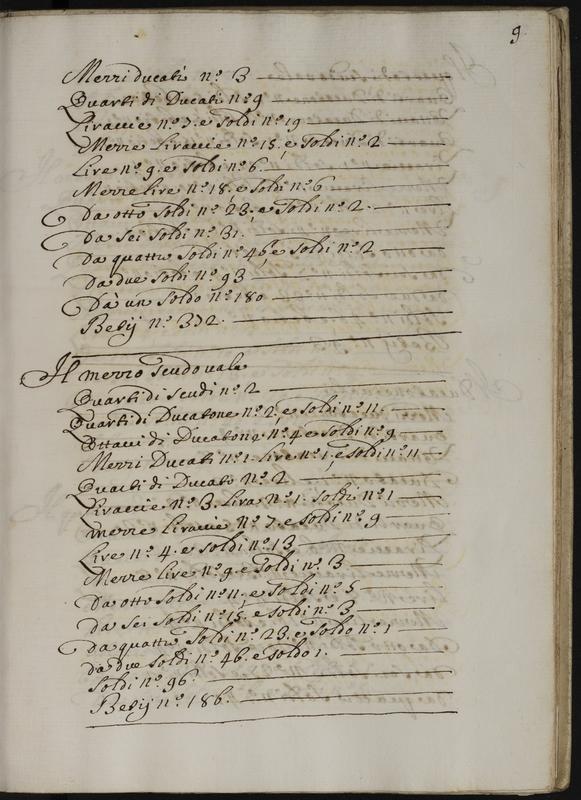 9
Mezzi ducati nº. 3
Quarti di Ducati nº 9
Liraccie nº 7. e Soldi nº 19
Mezze Liraccie nº 15. e Soldi nº 2
Lire nº 9. e Soldi nº 6
Mezze lire nº 18. e Soldi nº 6
Da otto Soldi nº 23. e Soldi nº 2.
Da Sei Soldi nº 31.
Da quattro Soldi nº 46. e Soldi nº 2
Da due Soldi nº 93
Dà un Soldo nº 180
Bezij nº 372.
Il mezzo Scudo uale
Quarti di Scudi nº 2
Quarti di Ducatone nº 2. e Soldi nº 11.
Ottaui di Ducatone nº 4 e Soldi nº 9
Mezzi Ducati nº 1. Lire nº 1. e Soldi nº 11
Quarti di Ducati nº 2
Liraccie nº 3. Lira nº 1. Soldi nº 1
mezze Liraccie nº 7. e Soldi nº 9
Lire nº 4. e Soldi nº 13
Mezze Lire nº 9. e Soldi nº 3
Da otto Soldi nº 11. e Soldi nº 5
da Sei Soldi nº 15. e Soldi nº 3
da quattro Soldi nº 23. e Soldo nº 1
da due Soldi nº 46. e Soldo 1.
Soldi nº 96.
Bezij nº 186.